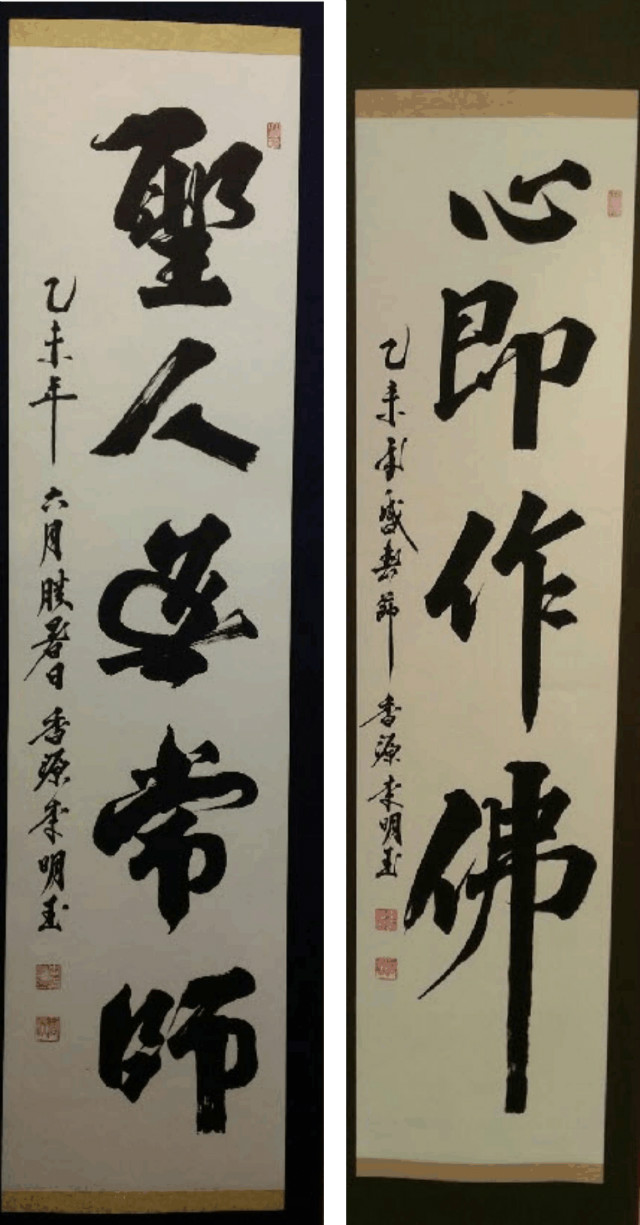 聖人無常師
乙未年 六月暑日 香源李明玉
心即作佛
乙未盛暑節 香源李明玉